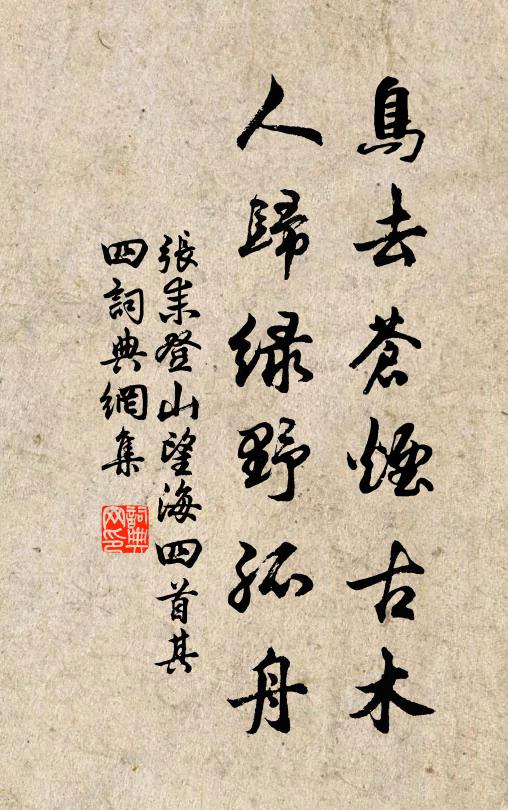 鳥去蒼煙古木
人歸緑野孤舟
張耒登山望海四首其
四詞典網集
詞典
网印